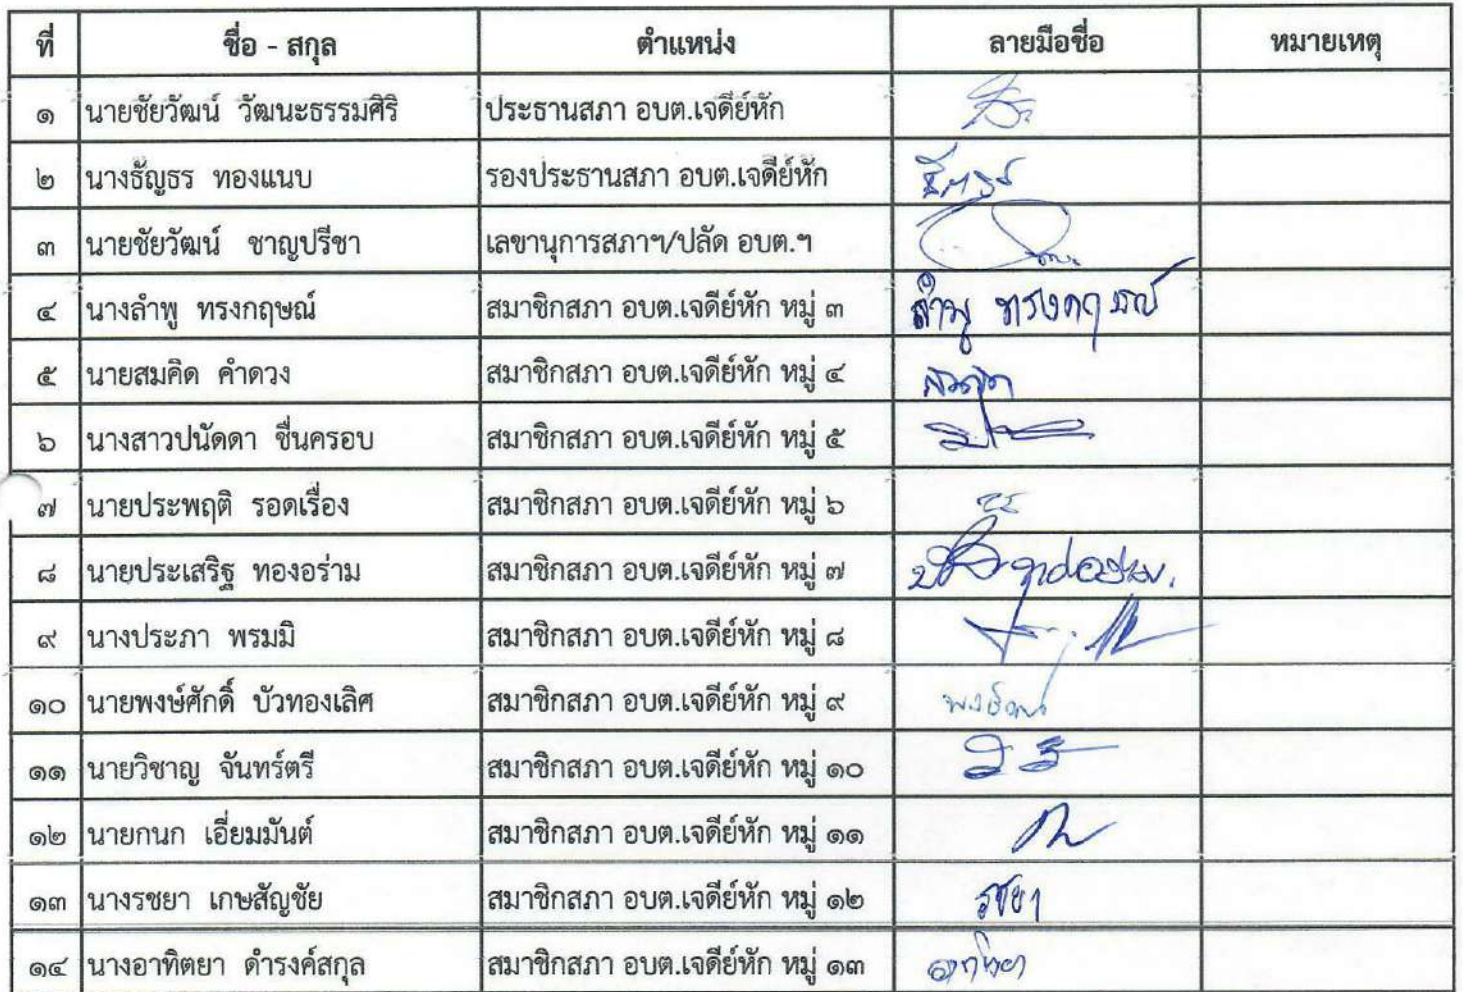 ที่ ชื่อ - สกุล ตำแหน่ง ลายมือชื่อ หมายเหตุ
๑ นายชัยวัฒน์ วัฒนะธรรมศิริ ประธานสภา อบต.เจดีย์หัก
๒ นางธัญธร ทองแนบ รองประธานสภา อบต.เจดีย์หัก
๓ นายชัยวัฒน์ ชาญปรีชา เลขานุการสภาฯ/ปลัด อบต.ฯ
๔ นางลำพู ทรงกฤษณ์ สมาชิกสภา อบต.เจดีย์หัก หมู่ ๓ ลำพู ทรงกฤษณ์
๕ นายสมคิด คำดวง สมาชิกสภา อบต.เจดีย์หัก หมู่ ๔
๖ นางสาวปนัดดา ชื่นครอบ สมาชิกสภา อบต.เจดีย์หัก หมู่ ๕
๗ นายประพฤติ รอดเรื่อง สมาชิกสภา อบต.เจดีย์หัก หมู่ ๖
๘ นายประเสริฐ ทองอร่าม สมาชิกสภา อบต.เจดีย์หัก หมู่ ๗
๙ นางประภา พรมมิ สมาชิกสภา อบต.เจดีย์หัก หมู่ ๘
๑๐ นายพงษ์ศักดิ์ บัวทองเลิศ สมาชิกสภา อบต.เจดีย์หัก หมู่ ๙
๑๑ นายวิชาญ จันทร์ตรี สมาชิกสภา อบต.เจดีย์หัก หมู่ ๑๐
๑๒ นายกนก เอี่ยมมันต์ สมาชิกสภา อบต.เจดีย์หัก หมู่ ๑๑
๑๓ นางรชยา เกษสัญชัย สมาชิกสภา อบต.เจดีย์หัก หมู่ ๑๒ รชยา
๑๔ นางอาทิตยา ดำรงค์สกุล สมาชิกสภา อบต.เจดีย์หัก หมู่ ๑๓ อาทิตยา